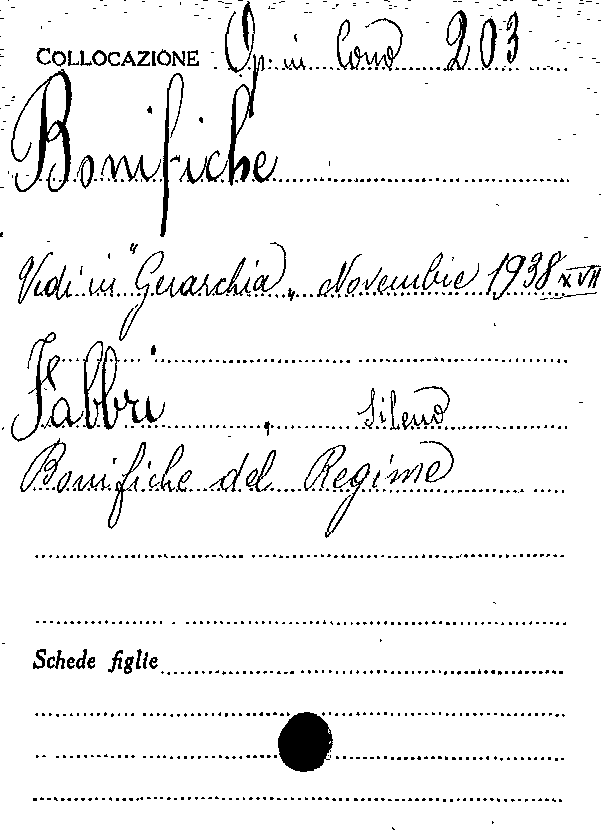 COLLOCAZIONE Op. in Cons 203
Bonifiche
Vedi in "Gerarchia" Novembre 1938 XVII
Fabbri, Sileno
Bonifiche del Regime
Schede figlie